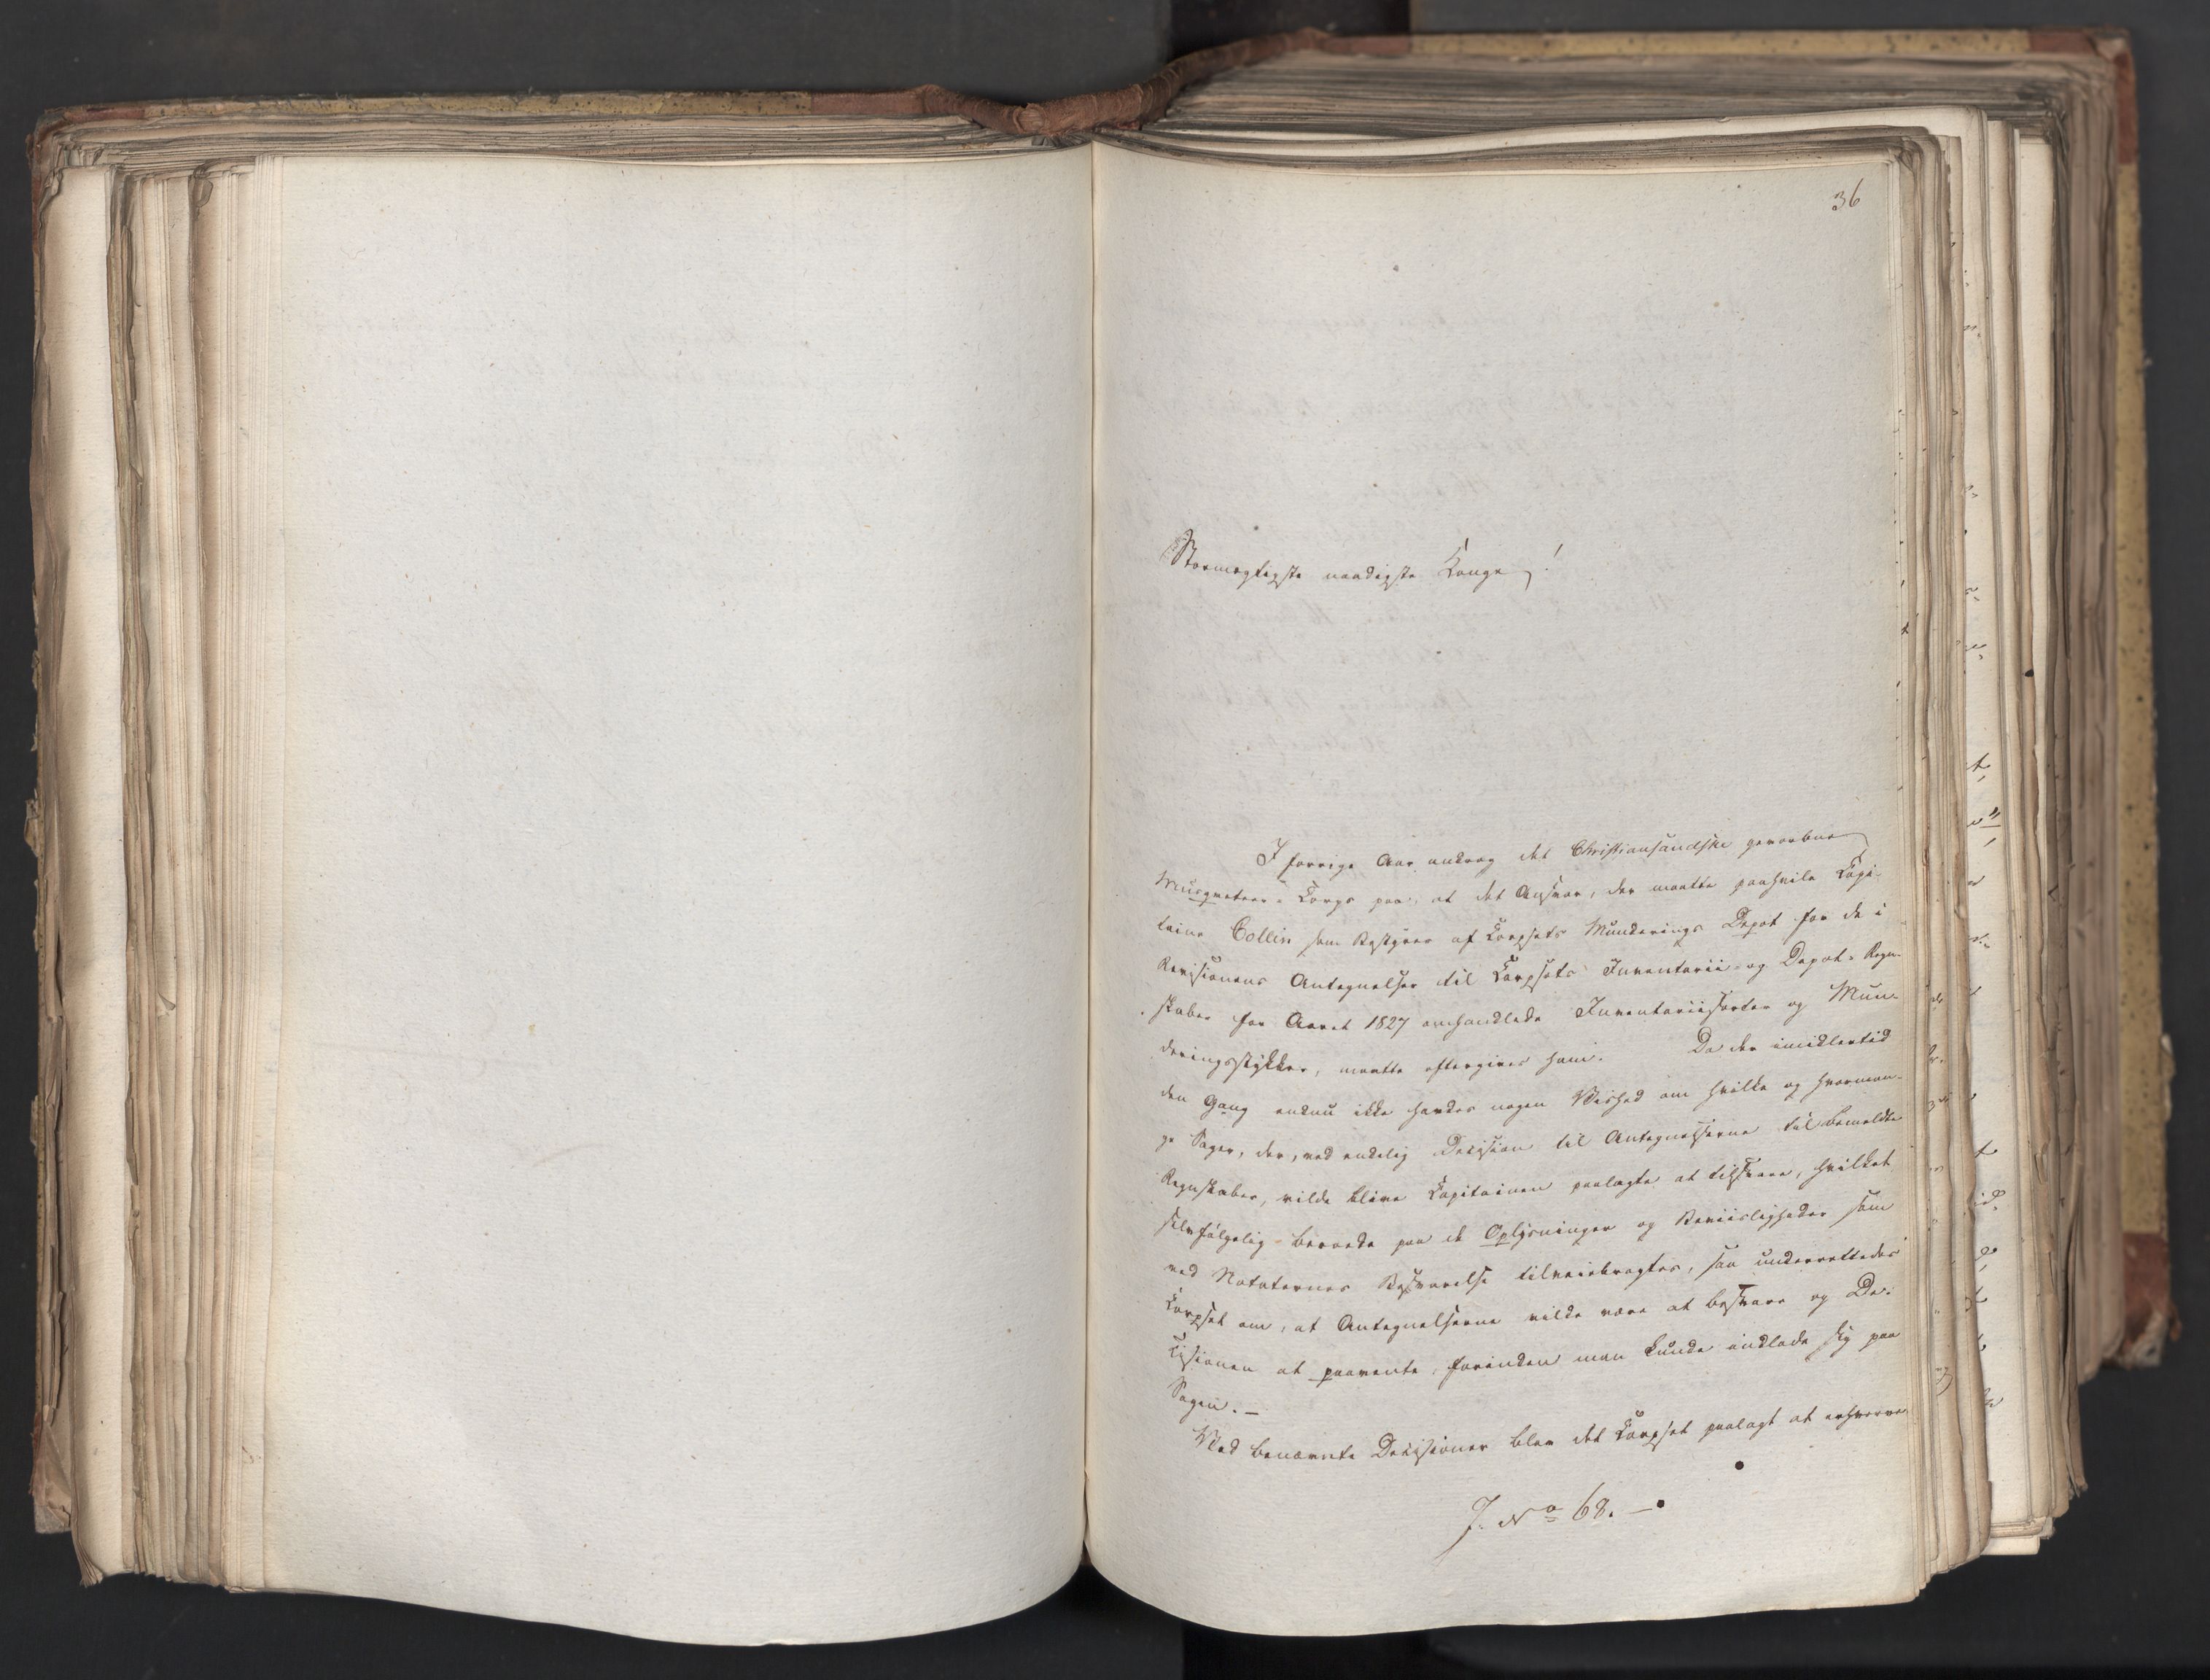 36
Stormægtigste naadigste Konge!
I forrige Aar androg det Christiansandske gevorbne
Musqueteer-Corps paa, at det Ansvar, der maatte paahvile Capi-
taine Collin som Bestyrer af Corpsets Munderings Depot for de i
Revisionens Antegnelser til Corpsets Inventarii- og Depot-Regn-
skaber for Aaret 1827 omhandlede Inventariisorter og Mun-
deringsstykker, maatte eftergives ham. Da der imidlertid
den Gang endnu ikke havdes nogen Vished om hvilke og hvorman-
ge Sager, der, ved endelig Decision til Antegnelserne til bemeldte
Regnskaber, vilde blive Capitainen paalagte at tilsvare, hvilket
selvfølgelig beroede paa de Oplysninger og Beviisligheder som
ved Notaternes Besvarelse tilveiebragtes, saa underrettedes
Corpset om, at Antegnelserne vilde være at besvare og De-
cisionen at paavente, forinden man kunde indlade sig paa
Sagen. —
Ved benævnte Decisioner blev det Corpset paalagt at erhverve
J. No 68. —